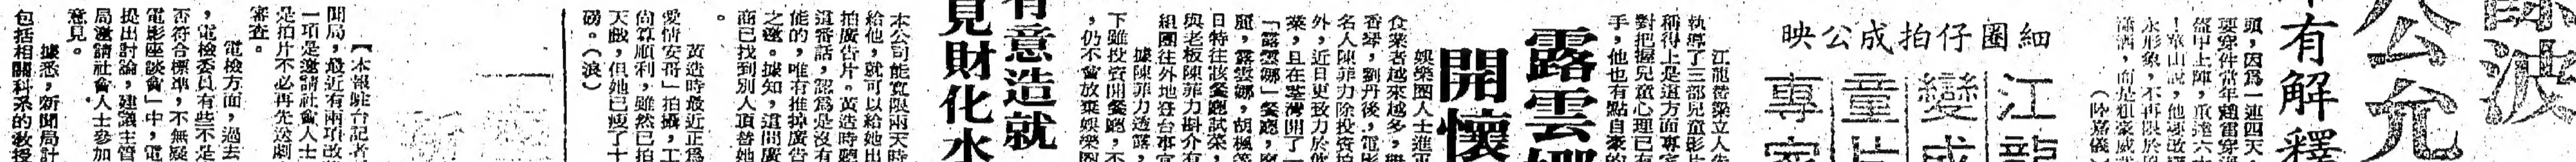 陳波
公允
有解釋
頭，因為一連四天
要穿件當年趙雷穿過
盔甲上陣，重達六十
永形象，不再限於
瀟洒，而是粗豪威武
（陸嘉儀）
細圈仔拍成公映
江龍
變成
童片
專家
江龍替榮立人先
執導了三部兒童影片
稱得上是這方面專家
對把握兒童心理已有
手，他也有點自豪的
露雲娜
開懷
娛樂圈人士進軍
食業者越來越多，
香琴，劉丹後，電影
名人陳菲力除投資拍
外，近日更致力於飲
業，且在荃灣開了一
「露雲娜」餐廳，
露雲娜，胡楓等
日特往該餐廳試菜，
與老板陳菲力斟介有
組團往外地登台事宜
據陳菲力透露，
下雖投資開餐廳，不
，仍不會放棄娛樂圈
有意造就
見財化水
本公司能寬限兩天時
給他，就可以給她出
拍廣告片。黃造時聽
這番話，認為是沒有
能的，唯有推掉廣告
之邀。據知，這間廣
商已找到別人頂替她
。
黃造時最近正為
愛情安哥」拍攝，工
尚算順利，雖然已拍
天戲，但她已瘦了十
磅。（浪）
【本報駐台記者
聞局，最近有兩項改
一項是邀請社會人士
是拍片不必再先送劇
審查。
電檢方面，過去
，電檢委員有些不足
否符合標準，不無疑
電影座談會」中，電
提出討論，建議主管
局邀請社會人士參加
意見。
據悉，新聞局計
包括相關科系的教授